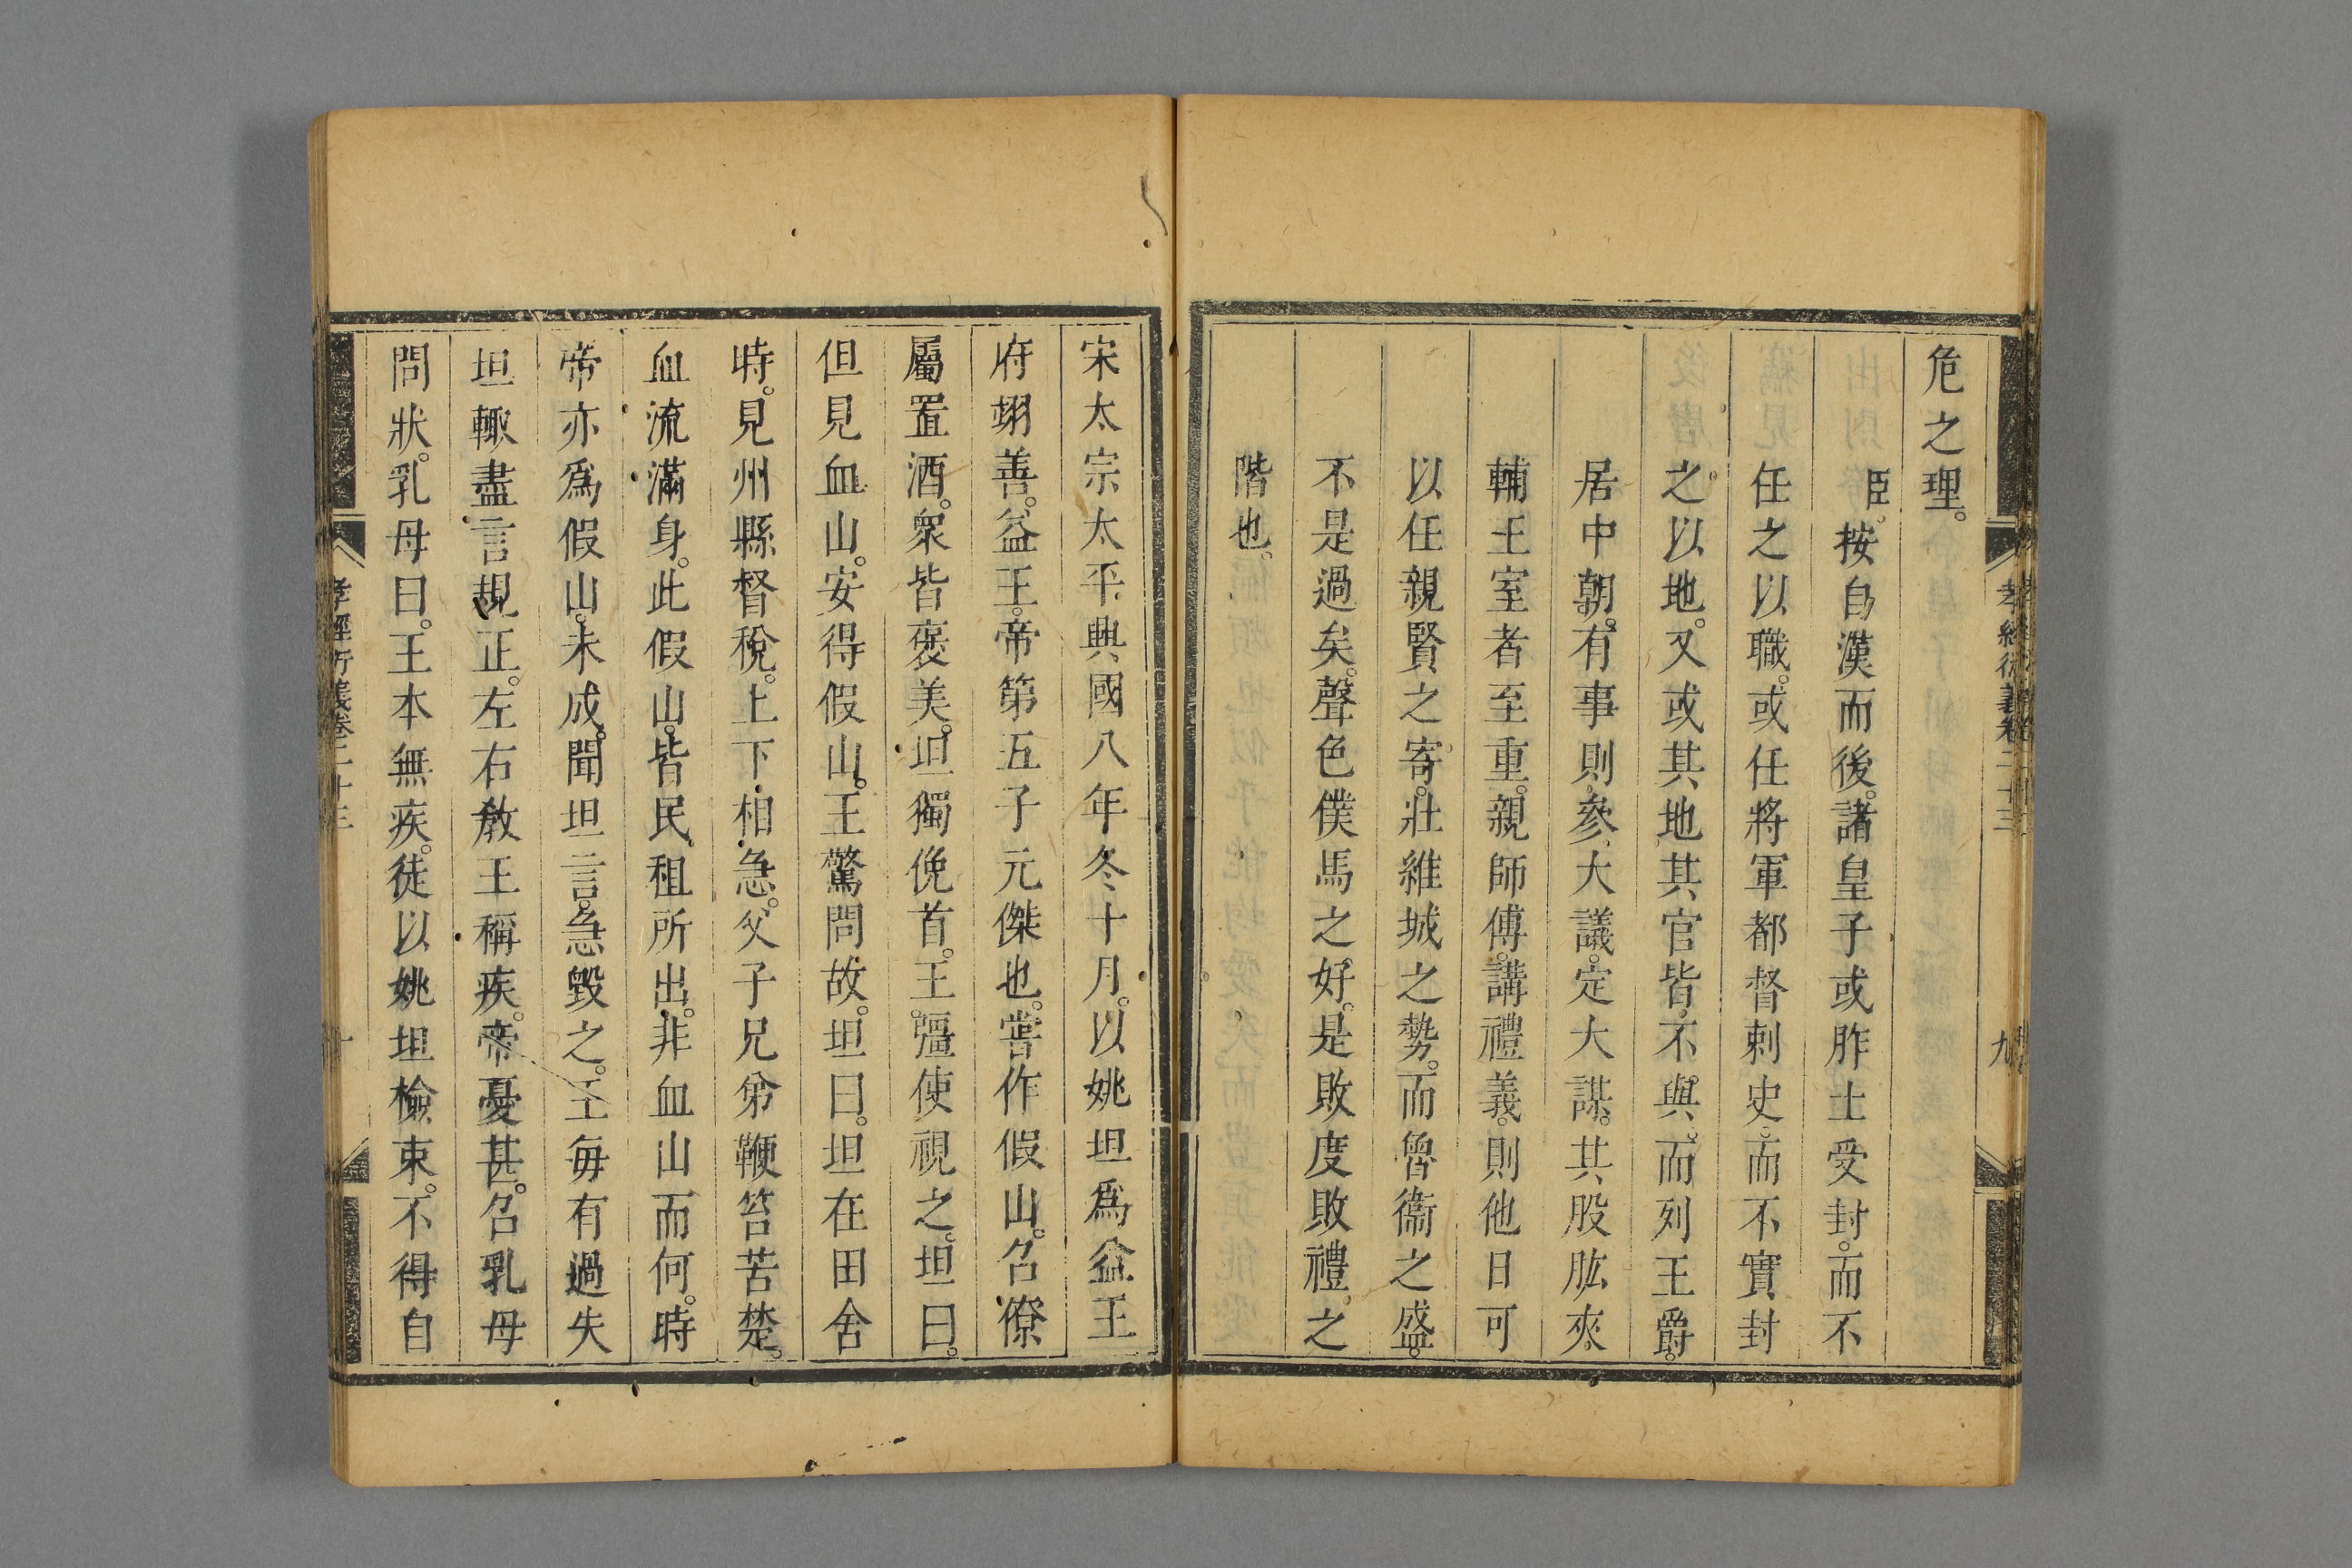 孝經衍義卷二十三
九
危之理。
臣按自漢而後。諸皇子或胙土受封。而不
任之以職。或任將軍都督刺史。而不實封
之以地。又或其地其官皆不與。而列王爵。
居中朝。有事則參大議。定大謀。其股肱夾
輔王室者至重。親師傅。講禮義。則他日可
以任親賢之寄。壯維城之勢。而魯衞之盛。
不是過矣。聲色僕馬之好。是敗度敗禮。之
階也。
宋太宗太平興國八年冬十月。以姚坦爲益王
府翊善。益王。帝第五子元傑也。嘗作假山。召僚
屬置酒。衆皆褒美。坦獨俛首。王彊使視之。坦曰。
但見血山。安得假山。王驚問故。坦曰。坦在田舍
時。見州縣督稅。上下相急。父子兄弟鞭笞苦楚。
血流滿身。此假山。皆民租所出。非血山而何。時
帝亦爲假山。未成。聞坦言。急毀之。王每有過失
坦輒盡言規正。左右教王稱疾。帝憂甚。召乳母
問狀。乳母曰。王本無疾。徒以姚坦檢束。不得自
孝經衍義卷二十三
十